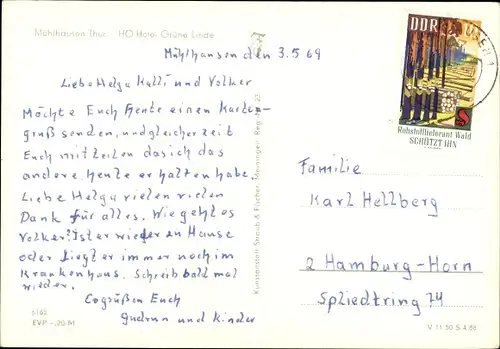 Mühlhausen Thür. HO Hotel Grüne Linde
Mühlhausen den 3.5.69
Liebe Helga Kalli und Volker
Möchte Euch Heute einen Karten-
gruß senden, und gleicher zeit
Euch mit teilen das ich das
andere Heute erhalten habe.
Liebe Helga vielen vielen
Dank für alles. Wie geht es
Volker? Ist er wieder zu Hause
oder liegt er immer noch im
Krankenhaus. Schreib bald mal
wieder.
Es grüßen Euch
Gudrun und Kinder
6165
EVP -,20 M
Kunstanstalt Straub & Fischer Meiningen
DDR
Rohstofflieferant Wald
SCHÜTZT IHN
Familie
Karl Hellberg
2 Hamburg-Horn
Spliedtring 74
V 11 50 S 4 68